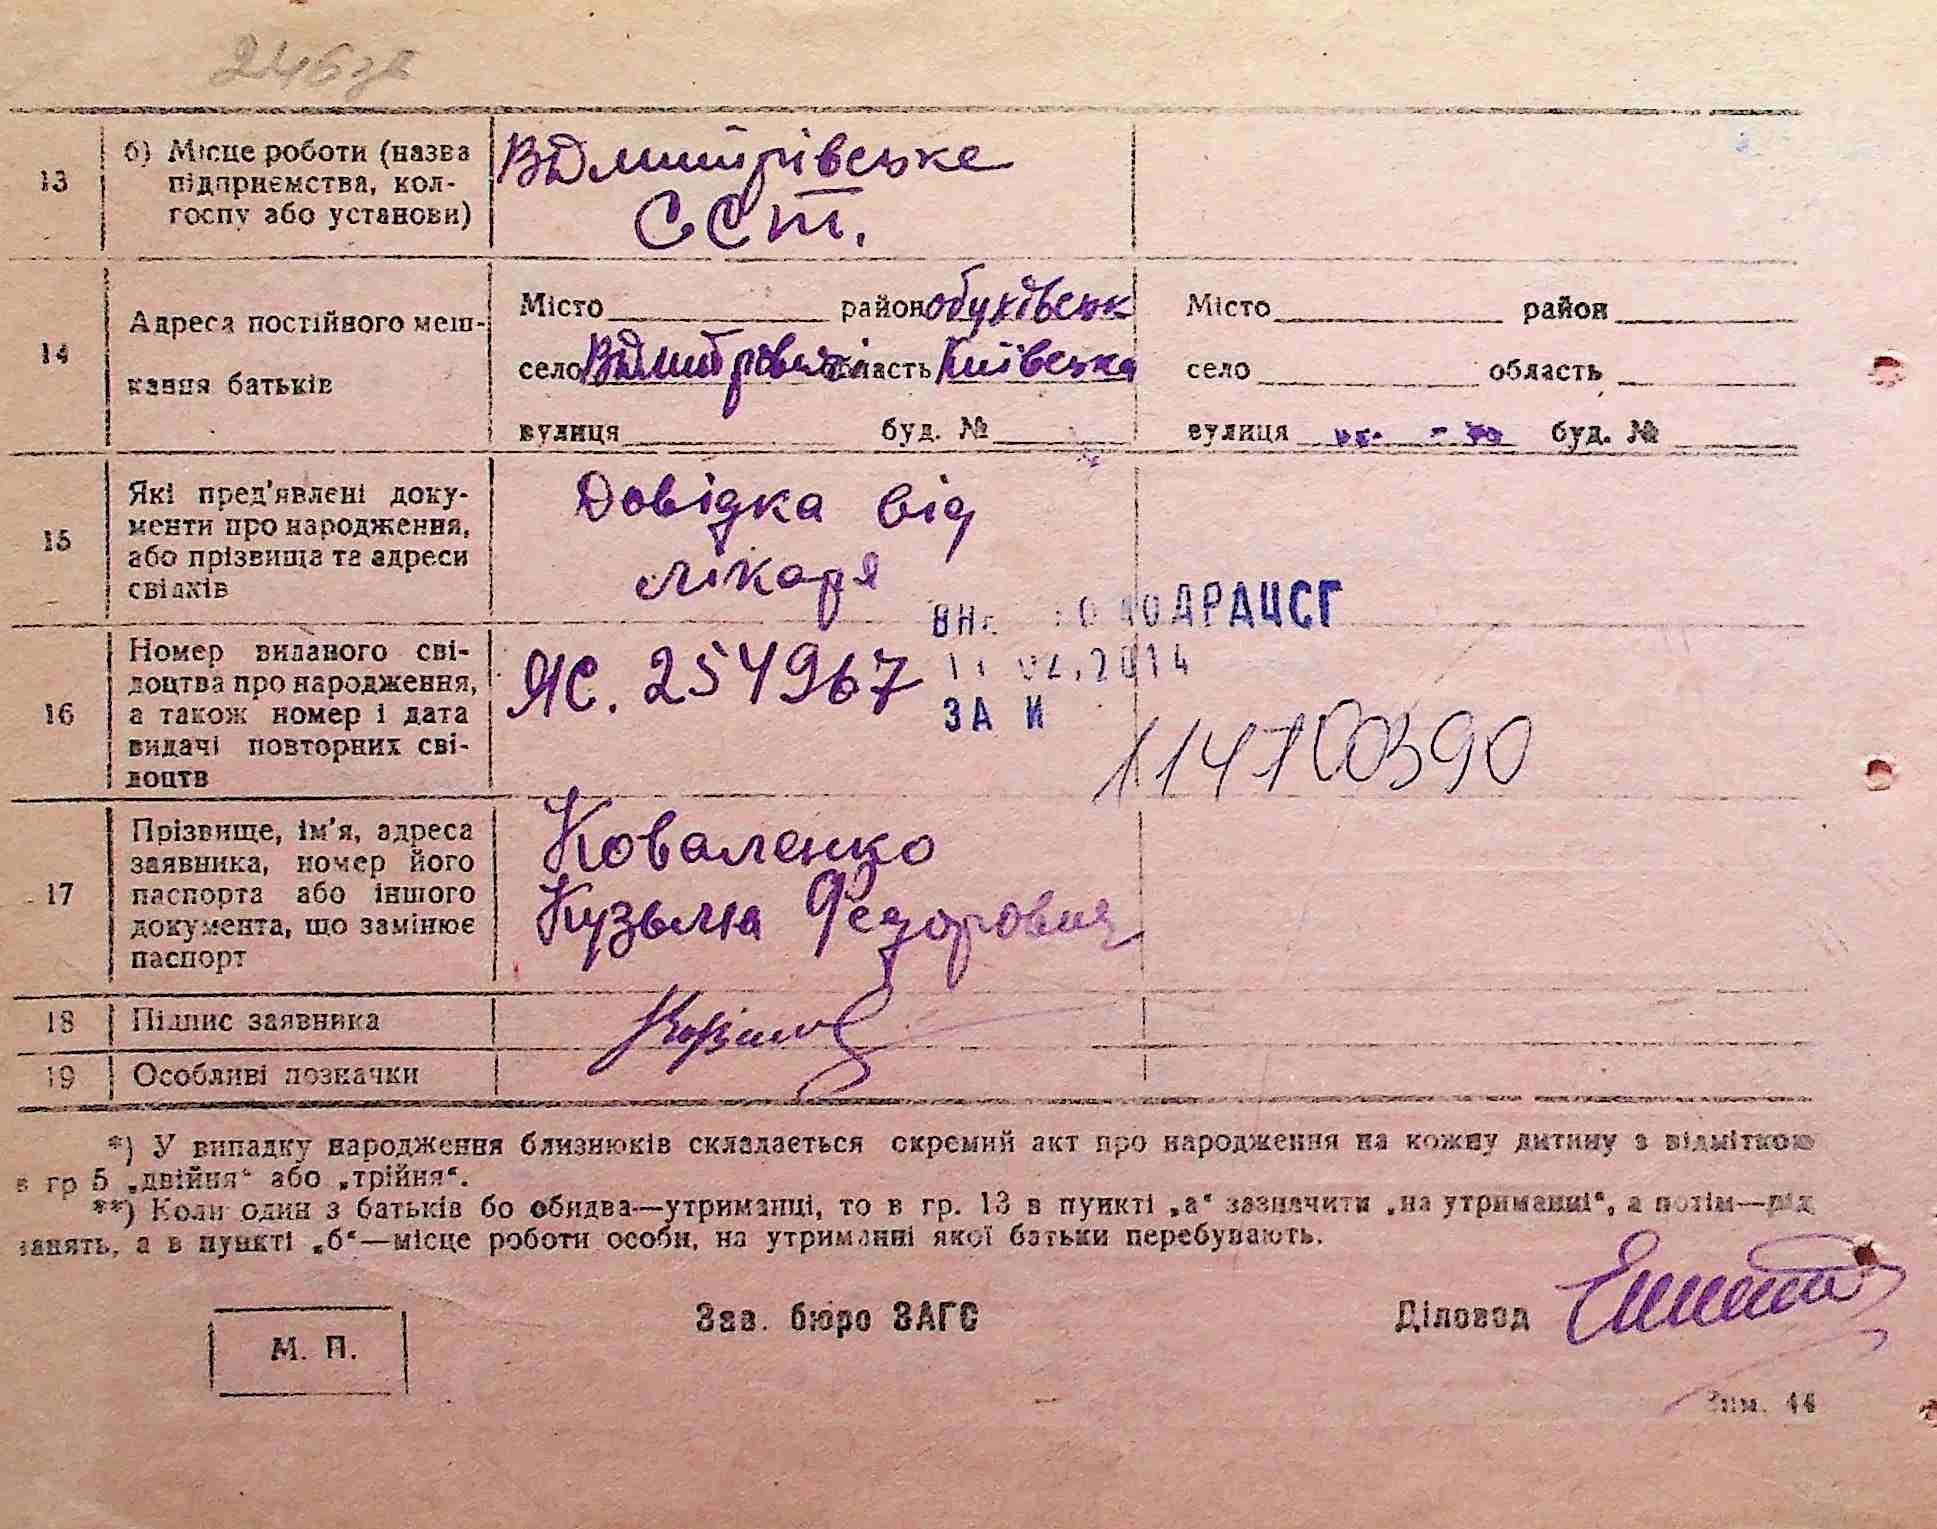 246зв
13
б) Місце роботи (назва
підприємства, кол-
госпу або установи)
ВДмитрівське
ССТ.
14
Адреса постійного меш-
кання батьків
Місто район обухівськ
село ВДмитрівка область Київська
вулиця буд. №
Місто район
село область
вулиця буд. №
15
Які пред'явлені доку-
менти про народження,
або прізвища та адреси
свідків
Довідка від
лікаря
16
Номер виданого сві-
доцтва про народження,
а також номер і дата
видачі повторних сві-
доцтв
ЯС. 254967
ДРАЦСГ
02.2014
ЗА
114100390
17
Прізвище, ім'я, адреса
заявника, номер його
паспорта або іншого
документа, що замінює
паспорт
Коваленко
Кузьма Федорович
18
Підпис заявника
19
Особливі позначки
*) У випадку народження близнюків складається окремий акт про народження на кожну дитину з відміткою
в гр 5 „двійня“ або „трійня“.
**) Коли один з батьків бо обидва—утриманці, то в гр. 13 в пункті „а“ зазначити „на утриманні“, а потім—рід
занять, а в пункті „б“—місце роботи особи, на утриманні якої батьки перебувають.
М. П.
Зав. бюро ЗАГС
Діловод
Зим. 44